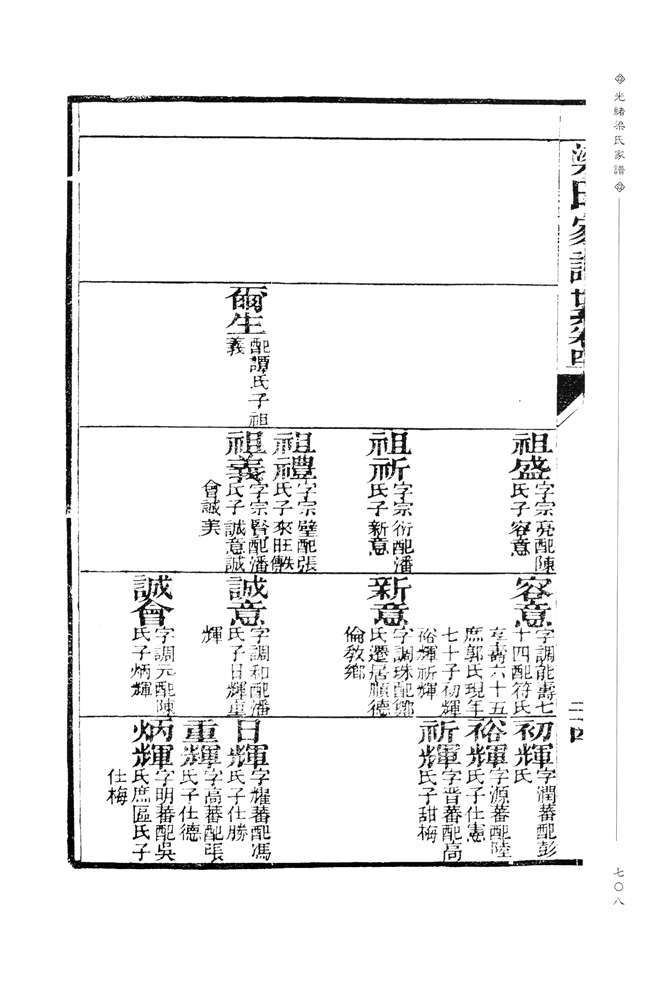 光緒梁氏家譜
七〇八
梁氏家譜 世系卷四
二十四
爾生
配譚氏子祖
義
祖盛
字宗亮配陳
氏子容意
祖祈
字宗衍配潘
氏子新意
祖禮
字宗璧配張
氏子來旺
祖義
字宗賢配潘
氏子誠意誠
會誠美
容意
字調能壽七
十四配符氏
享壽六十五
庶郭氏現年
七十子初輝
裕輝祈輝
新意
字調珠配鄭
氏遷居順德
倫教鄉
誠意
字調和配潘
氏子日輝重
輝
誠會
字調元配陳
氏子炳輝
初輝
字潤蕃配彭
氏
裕輝
字源蕃配陸
氏子仕憲
祈輝
字晋蕃配高
氏子甜梅
日輝
字耀蕃配馮
氏子仕勝
重輝
字高蕃配張
氏子仕德
炳輝
字明蕃配吳
氏庶區氏子
仕梅